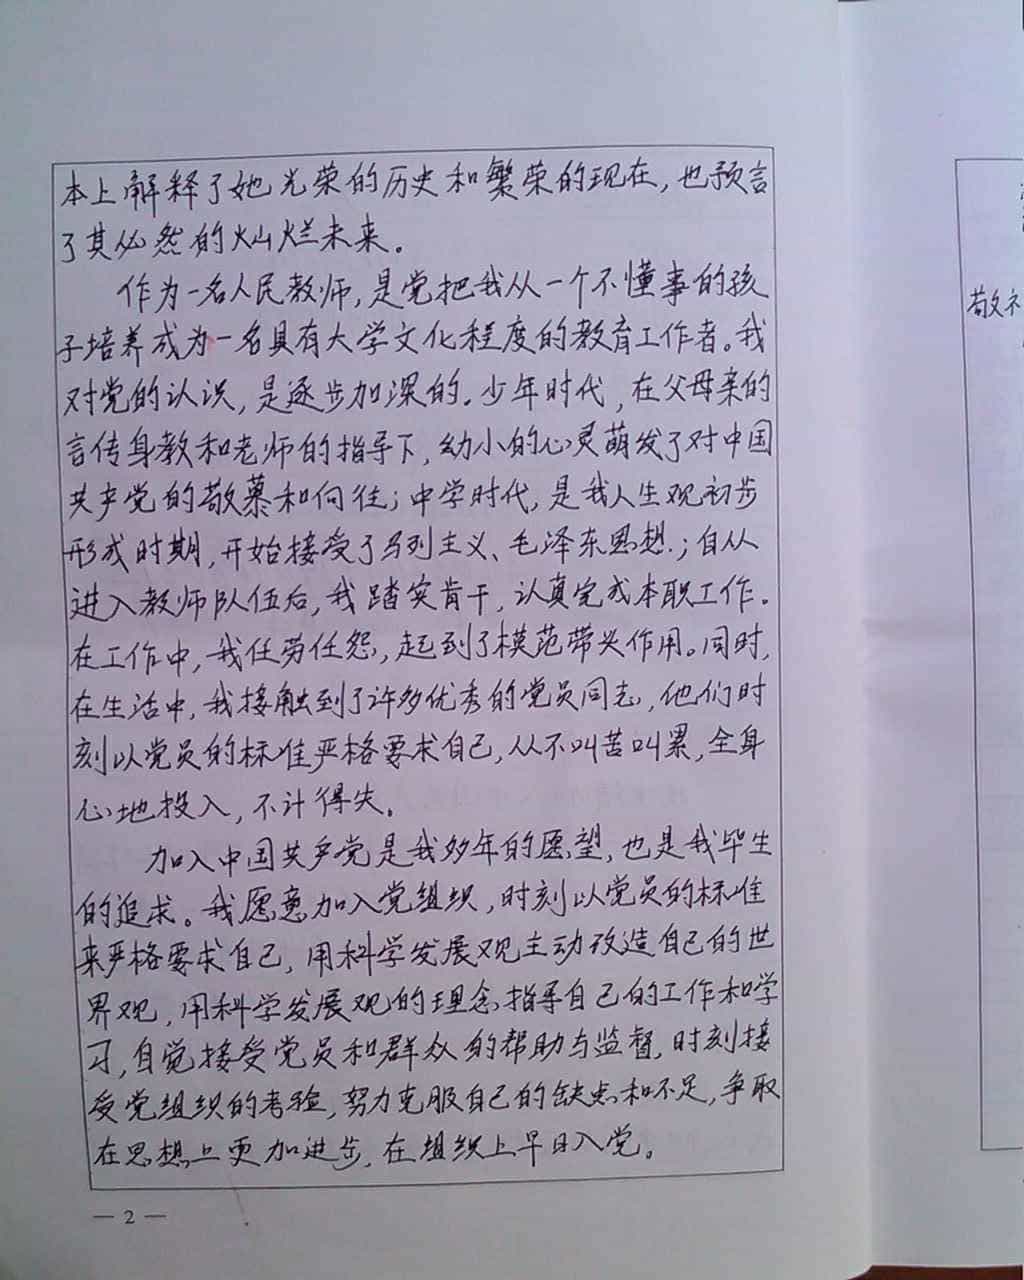 本上解释了她光荣的历史和繁荣的现在,也预言
了其必然的灿烂未来。
作为一名人民教师,是党把我从一个不懂事的孩
子培养成为一名具有大学文化程度的教育工作者。我
对党的认识,是逐步加深的。少年时代,在父母亲的
言传身教和老师的指导下,幼小的心灵萌发了对中国
共产党的敬慕和向往;中学时代,是我人生观初步
形成时期,开始接受了马列主义、毛泽东思想.;自从
进入教师队伍后,我踏实肯干,认真完成本职工作。
在工作中,我任劳任怨,起到了模范带头作用。同时,
在生活中,我接触到了许多优秀的党员同志,他们时
刻以党员的标准严格要求自己,从不叫苦叫累,全身
心地投入,不计得失。
加入中国共产党是我多年的愿望,也是我毕生
的追求。我愿意加入党组织,时刻以党员的标准
来严格要求自己,用科学发展观主动改造自己的世
界观,用科学发展观的理念指导自己的工作和学
习,自觉接受党员和群众的帮助与监督,时刻接
受党组织的考验,努力克服自己的缺点和不足,争取
在思想上更加进步,在组织上早日入党。
— 2 —
敬礼